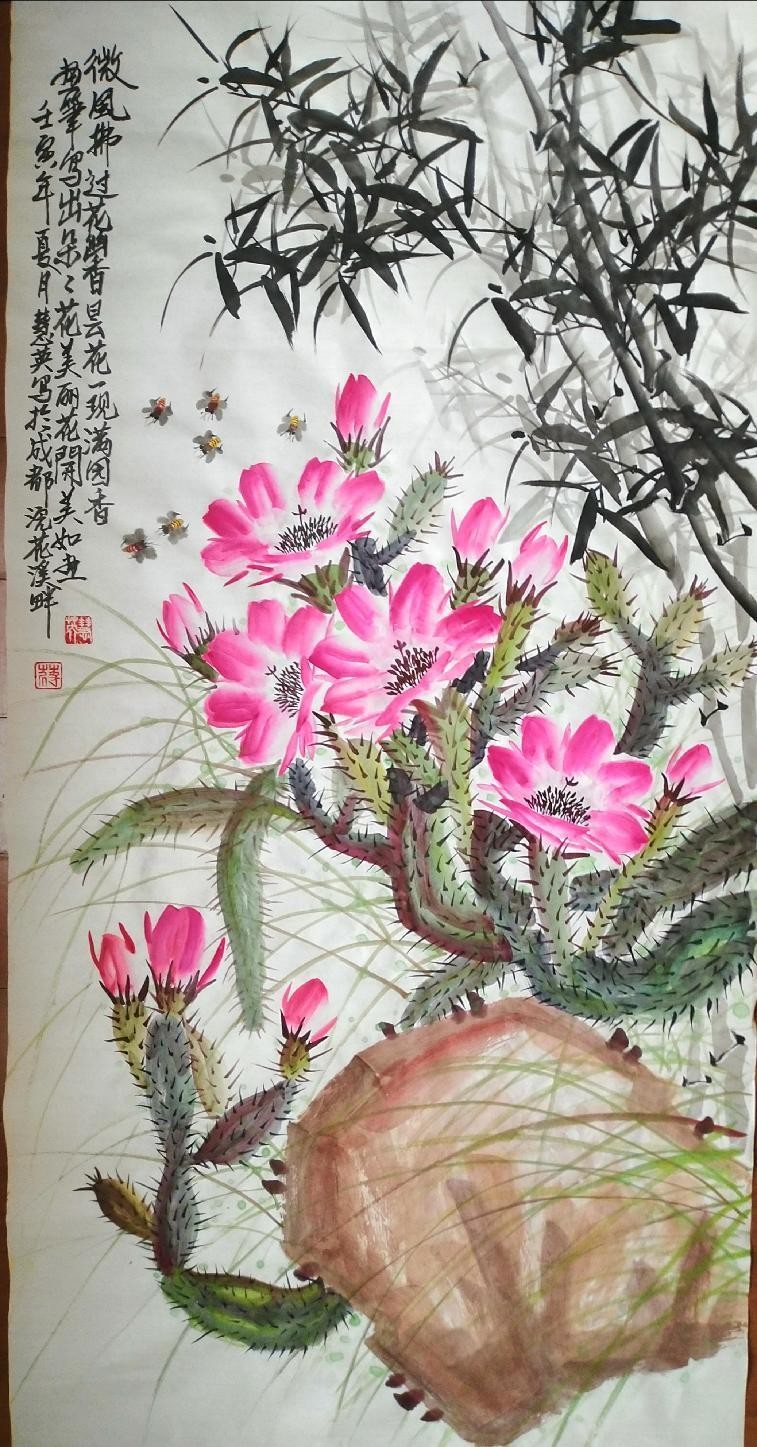 微风拂过花粉香昙花一现满园香
留笔写出朵々花美丽花開美如画
壬寅年夏月慧英写於成都浣花溪畔
慧英
蒋